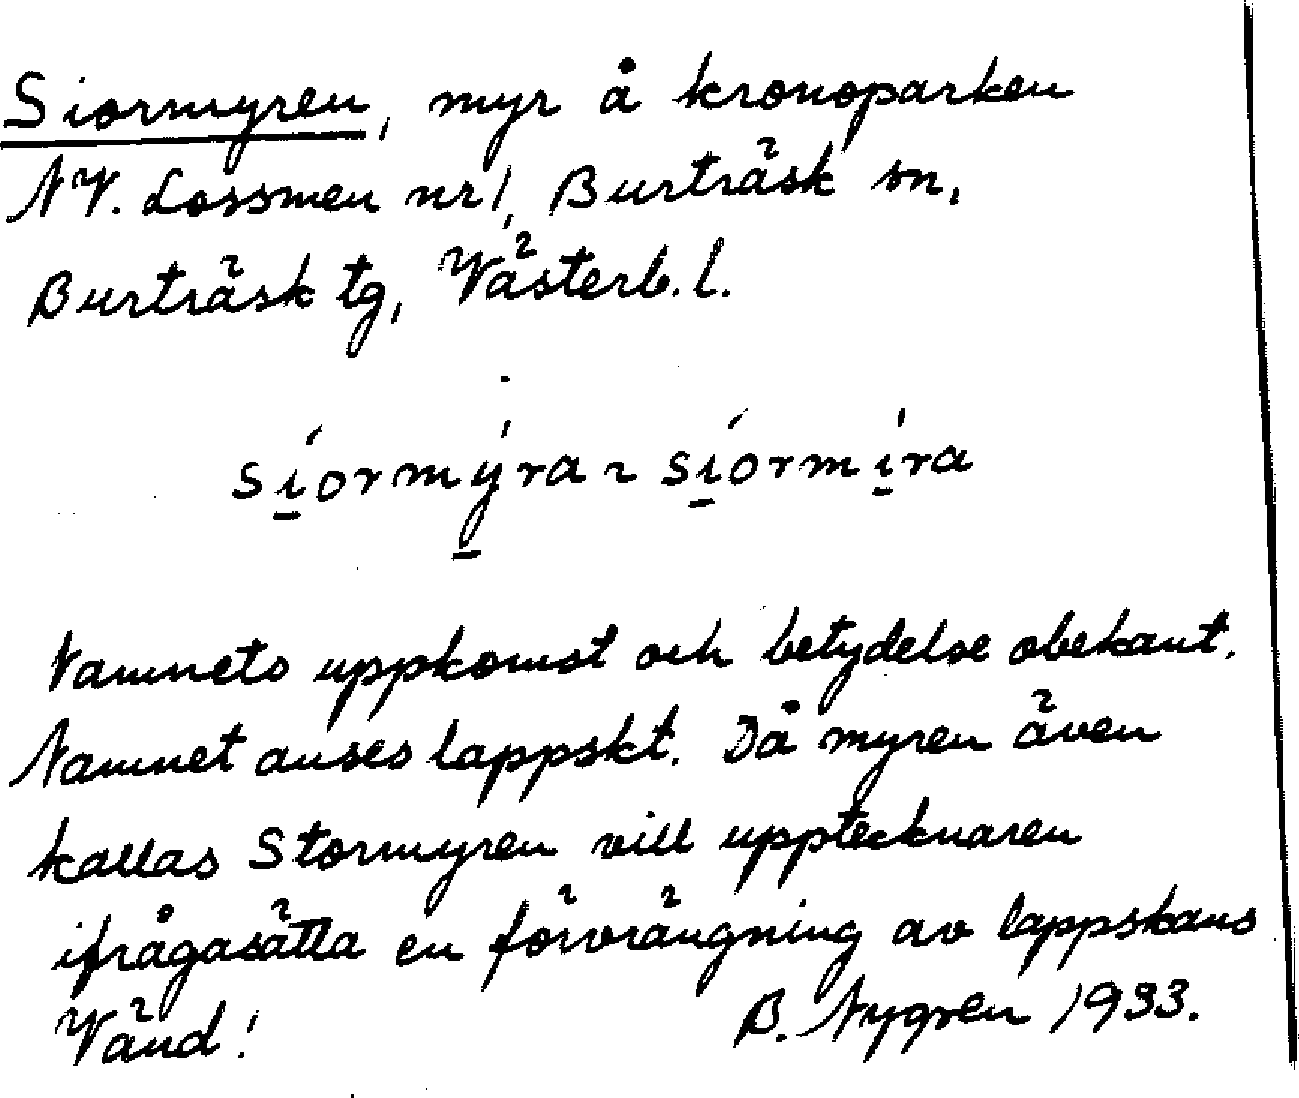 Siormyren, myr å kronoparken
NV. Lossmen nr 1, Burträsk sn,
Burträsk tg, Västerb. l.
síormýra ~ síormíra
Namnets uppkomst och betydelse obekant.
Namnet anses lappskt. Då myren även
kallas Stormyren vill upptecknaren
ifrågasätta en förvrängning av lappskans
Vänd! B. Nygren 1933.